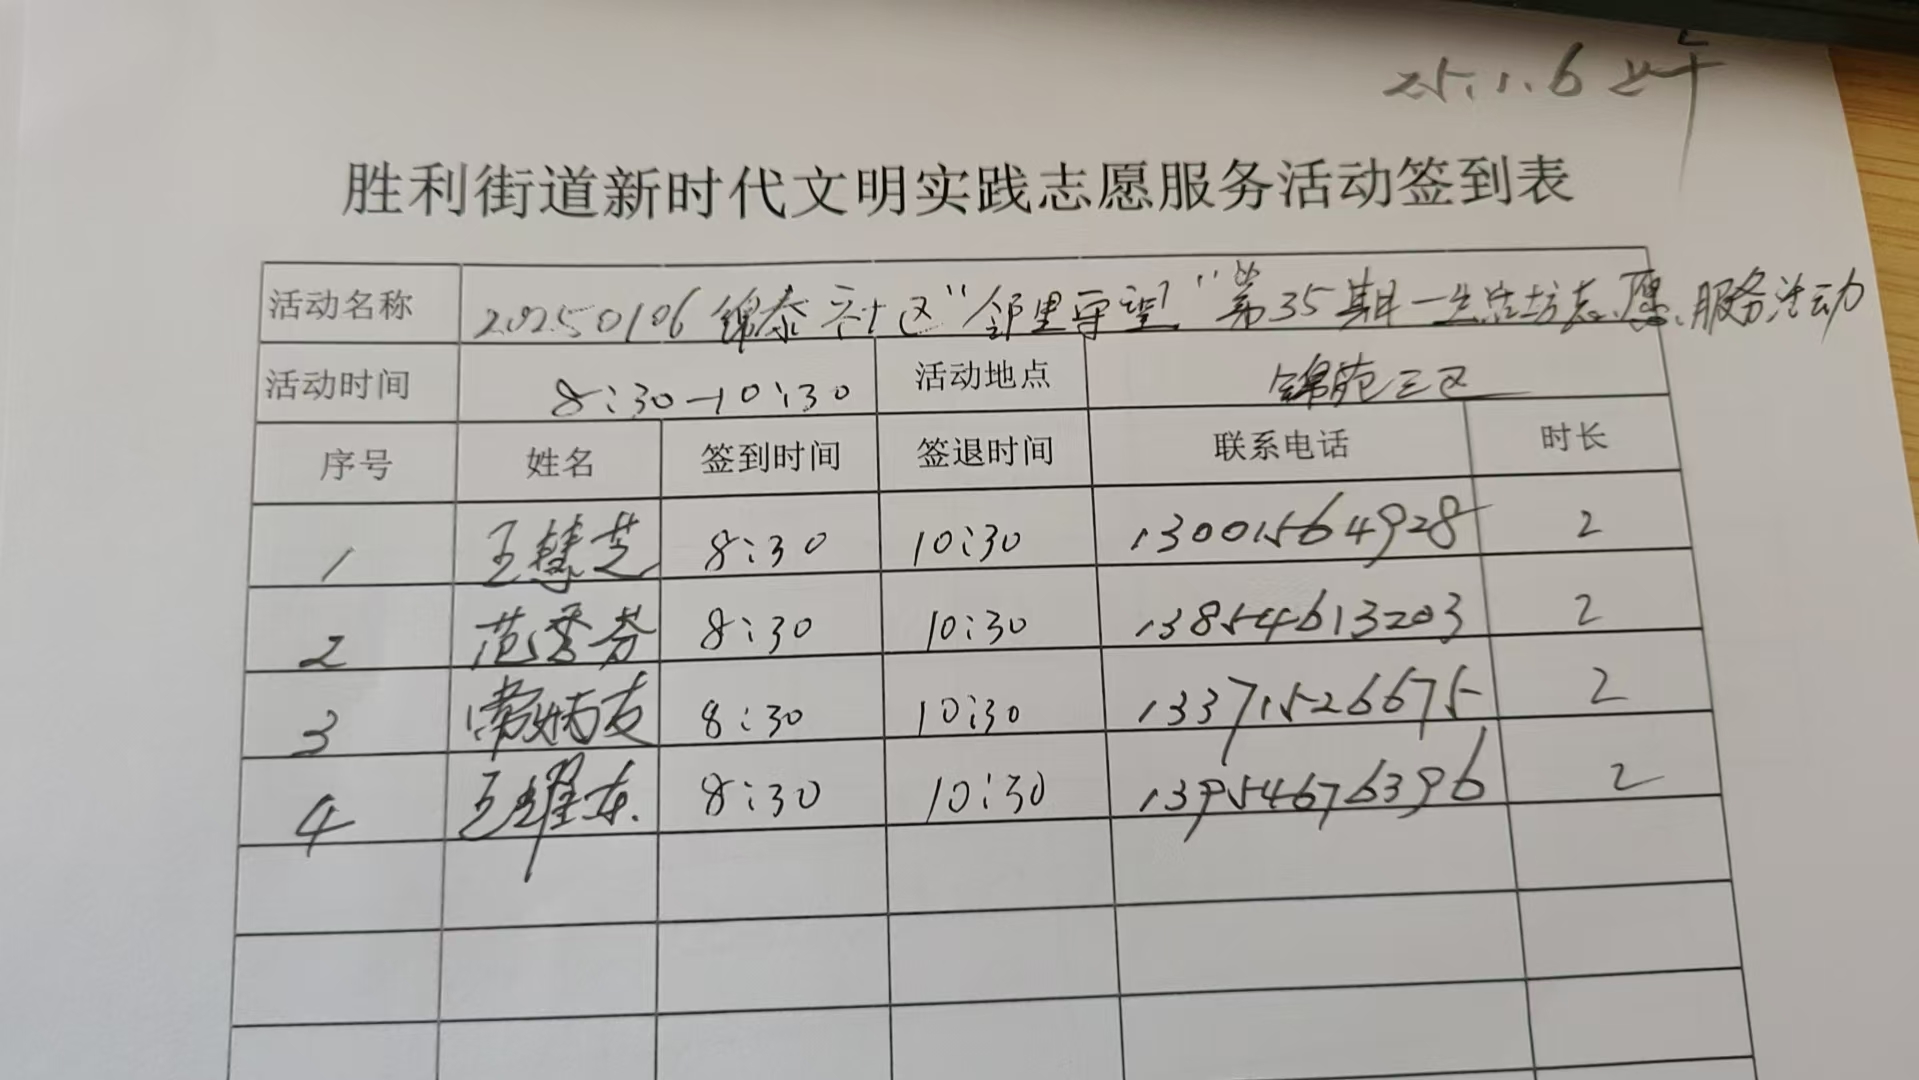 25.1.6上午
胜利街道新时代文明实践志愿服务活动签到表
活动名称 20250106锦泰社区“邻里守望”第35期一生态坊志愿服务活动
活动时间 8:30-10:30 活动地点 锦苑三区
序号 姓名 签到时间 签退时间 联系电话 时长
1 王慧芝 8:30 10:30 13001564928 2
2 范秀芬 8:30 10:30 13854613203 2
3 常炳友 8:30 10:30 13371526675 2
4 王耀东 8:30 10:30 13954676396 2